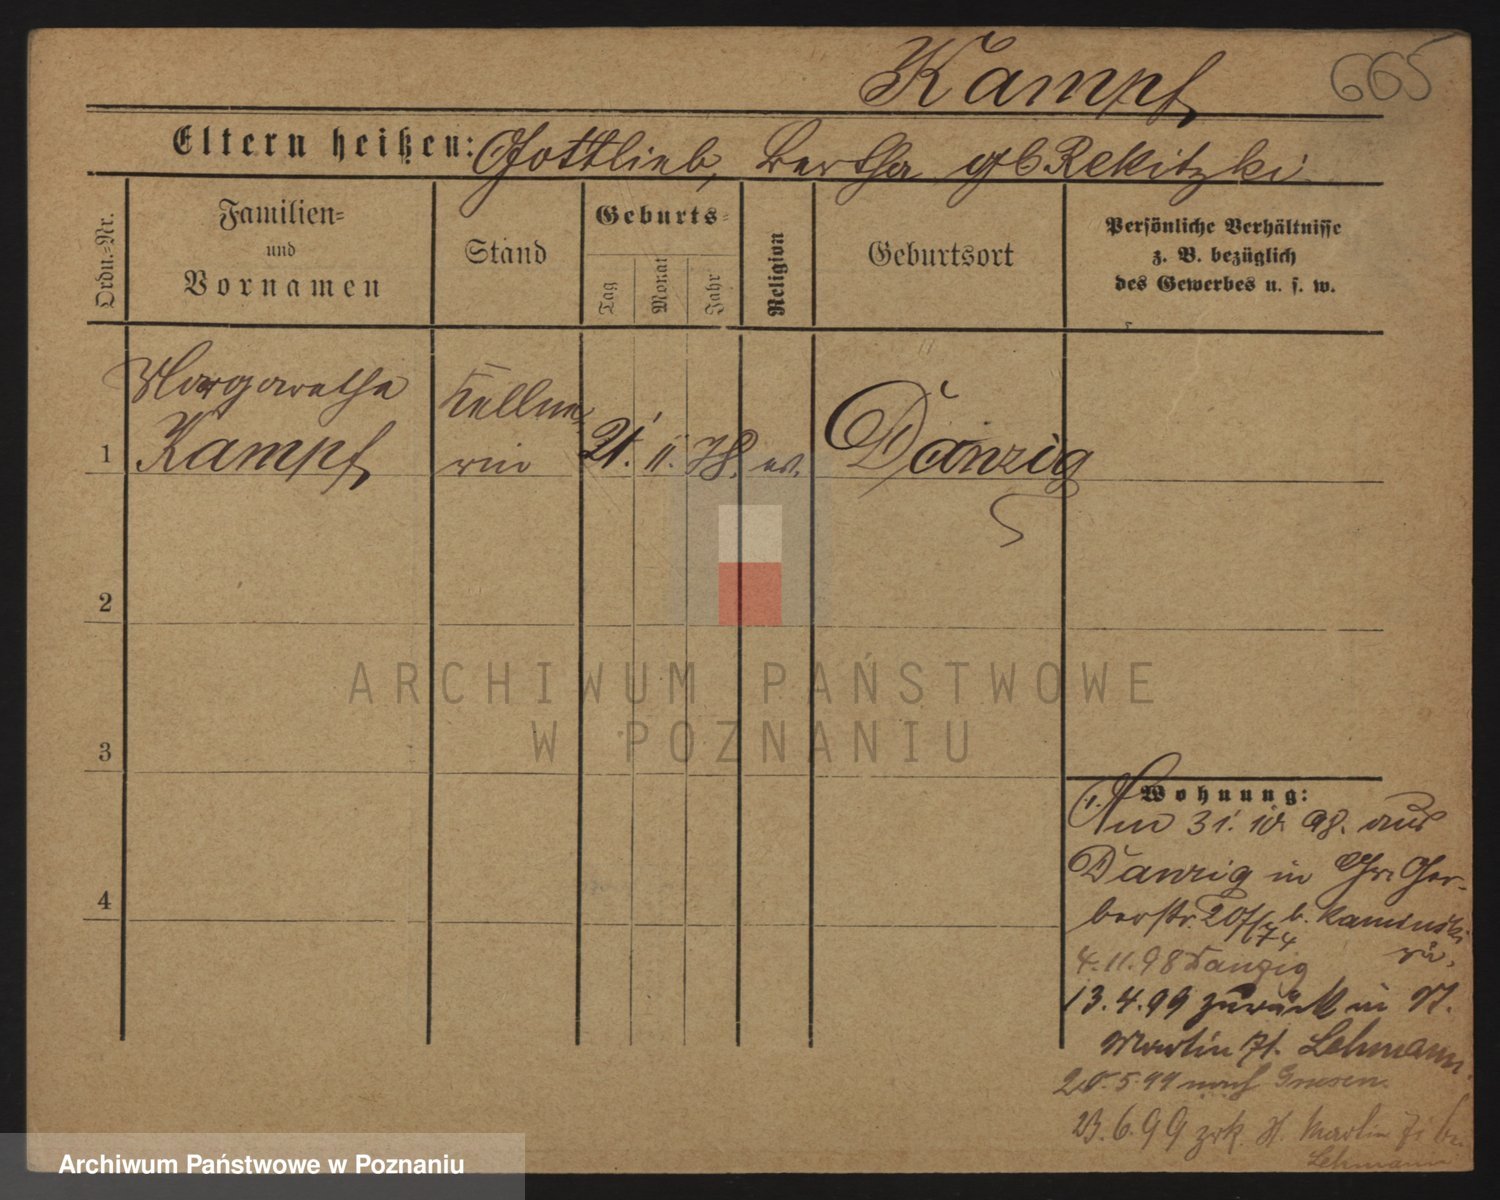 Kampf
665
Eltern heißen: Gottlieb, Bertha gb Rekitzki
Ordn.-Nr.
Familien-
und
Vornamen
Stand
Geburts-
Tag
Monat
Jahr
Religion
Geburtsort
Persönliche Verhältnisse
z. B. bezüglich
des Gewerbes u. s. w.
Margarethe
Kampf
Kellne-
rin
1
21. 11. 78. ev.
Danzig
2
ARCHIWUM PAŃSTWOWE
W POZNANIU
3
Wohnung:
Am 31. 10. 98. aus
Danzig in Gr. Ger-
berstr. 20/ b. Kaminski
4
4.11.98 Danzig
13.4.99 zurück in St.
Martin 71. Lehmann
20.5.99 nach Gnesen.
23.6.99 zrk. St. Martin 71 bei
Lehmann
Archiwum Państwowe w Poznaniu